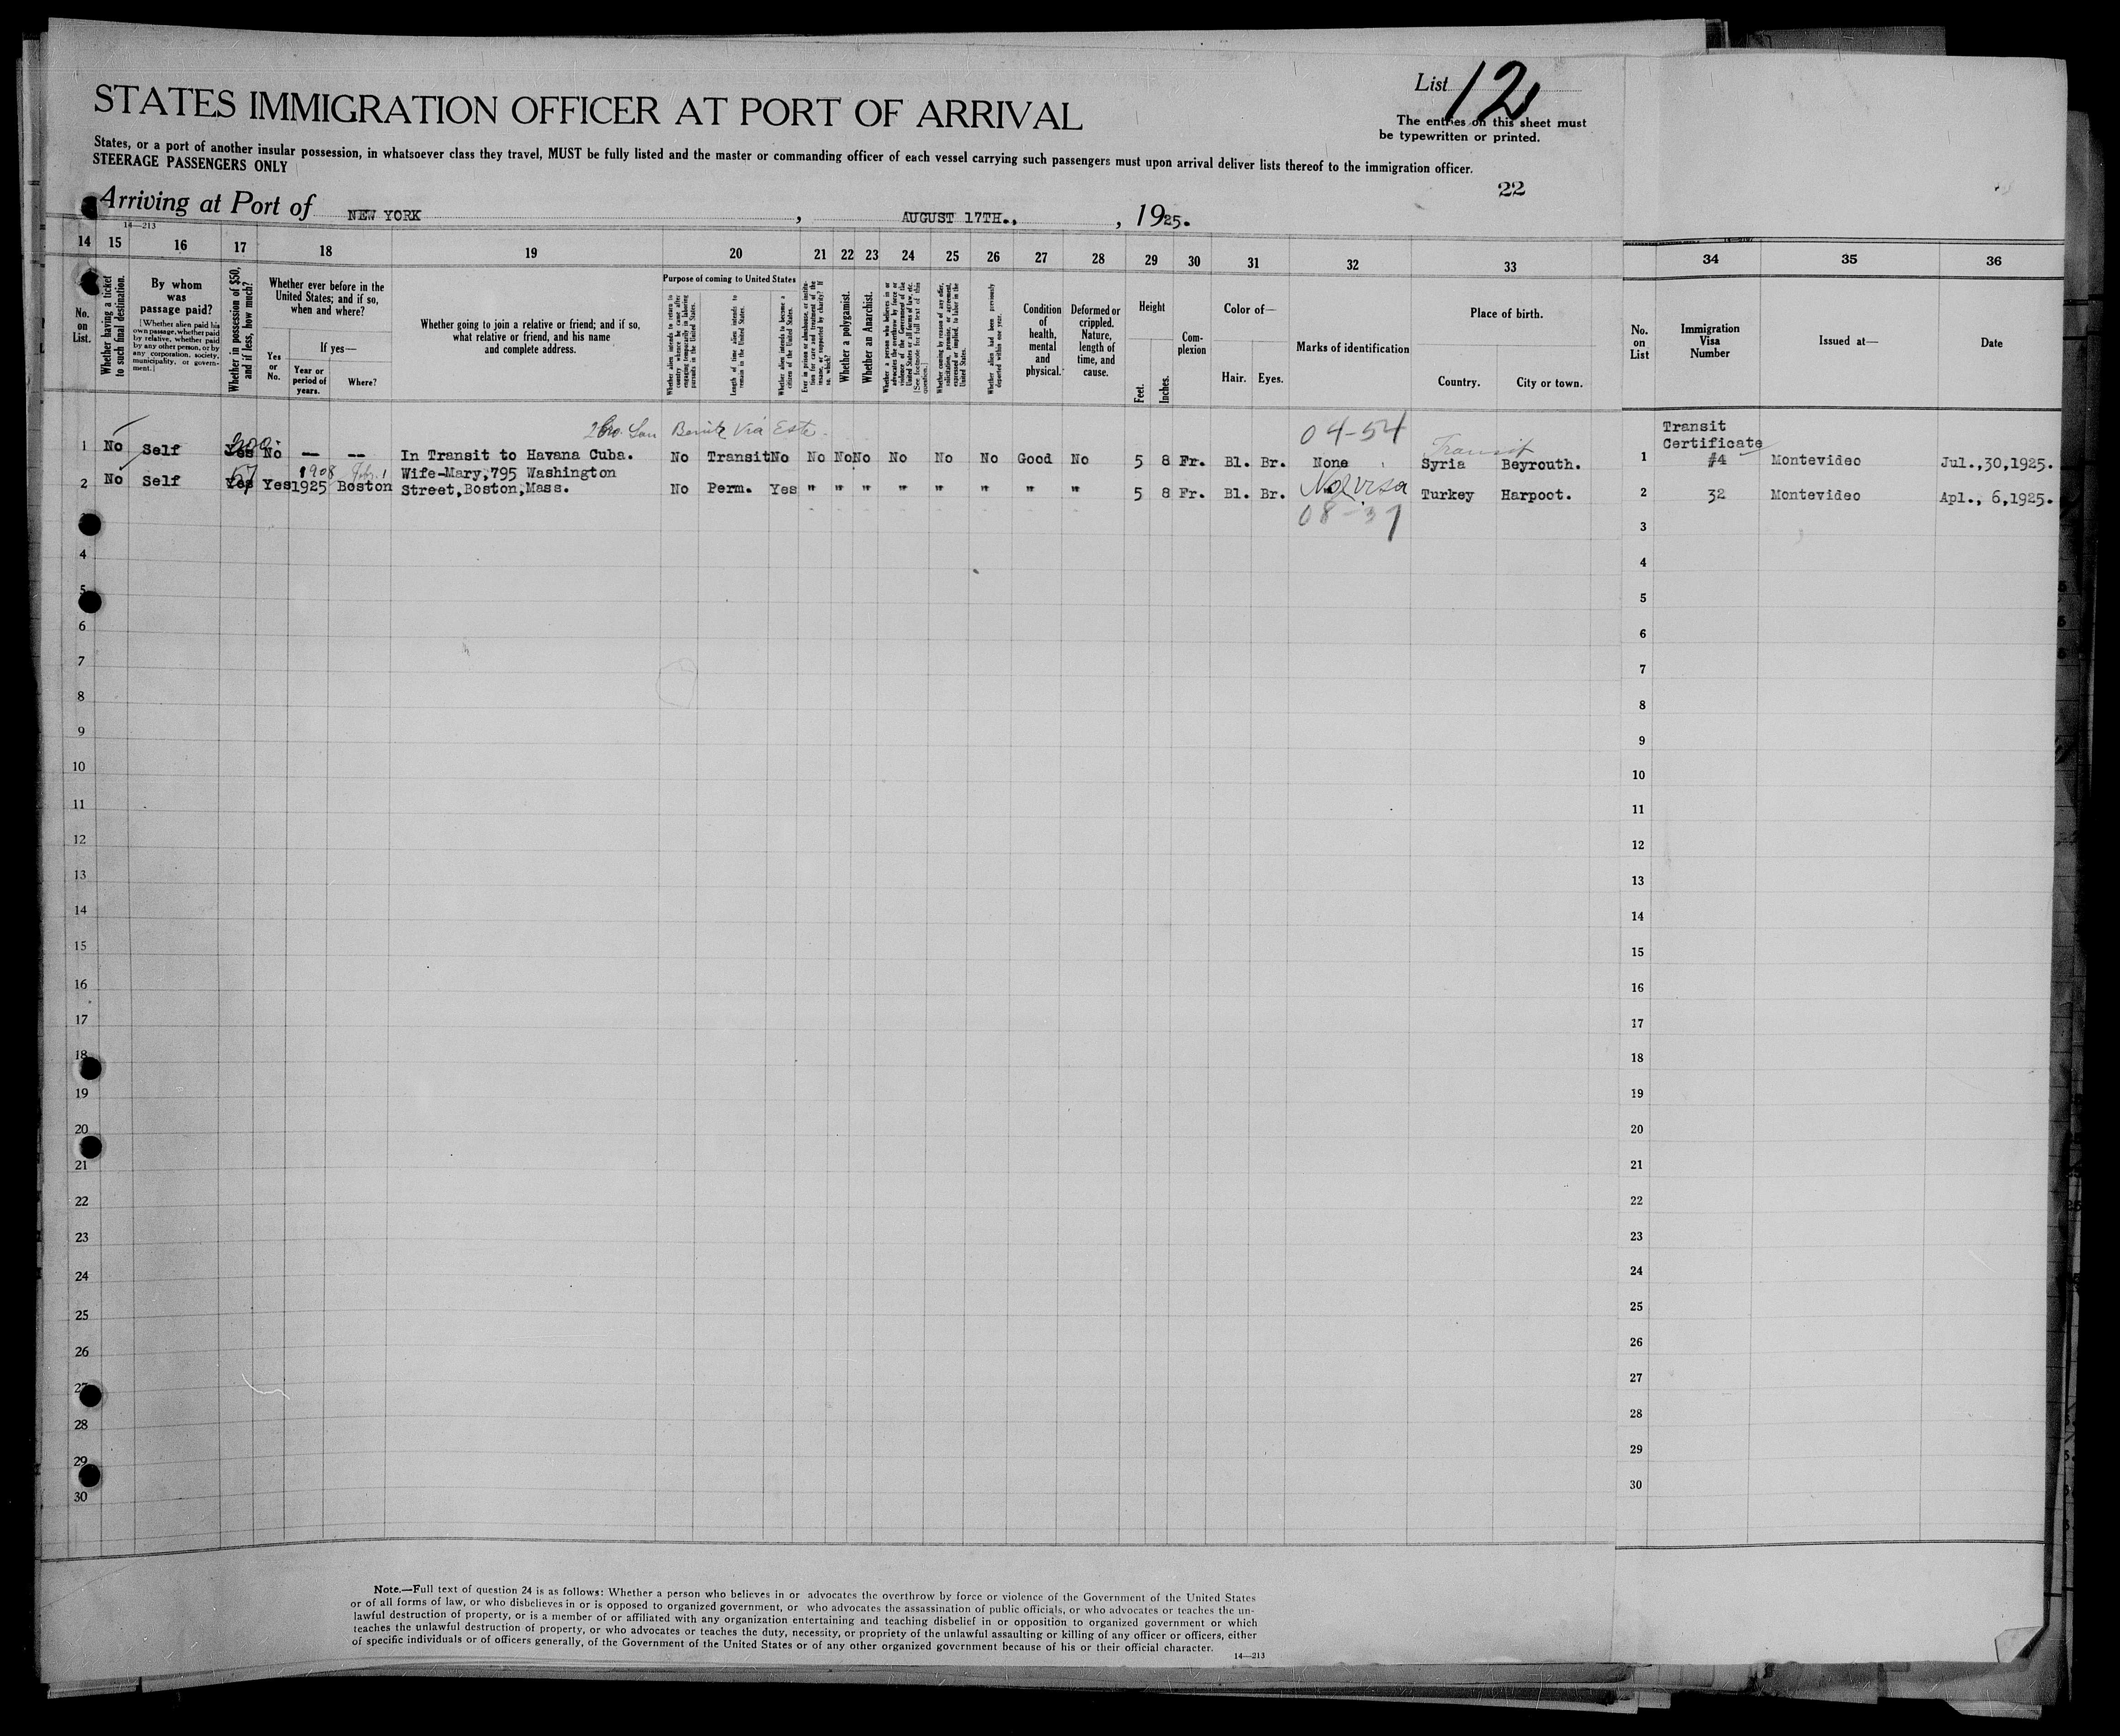 List 12
STATES IMMIGRATION OFFICER AT PORT OF ARRIVAL
The entries on this sheet must
be typewritten or printed.
States, or a port of another insular possession, in whatsoever class they travel, MUST be fully listed and the master or commanding officer of each vessel carrying such passengers must upon arrival deliver lists thereof to the immigration officer.
STEERAGE PASSENGERS ONLY
22
Arriving at Port of NEW YORK, AUGUST 17TH., , 1925.
14—213
14 15 16 17 18 19 20 21 22 23 24 25 26 27 28 29 30 31 32 33 34 35 36
No. on List.
Whether having a ticket to such final destination.
By whom was passage paid?
[Whether alien paid his own passage, whether paid by relative, whether paid by any other person, or by any corporation, society, municipality, or government.]
Whether in possession of $50, and if less, how much?
Whether ever before in the United States; and if so, when and where?
Yes or No.
If yes—
Year or period of years.
Where?
Whether going to join a relative or friend; and if so, what relative or friend, and his name and complete address.
Purpose of coming to United States
Whether alien intends to return to country whence he came after engaging temporarily in laboring pursuits in the United States.
Length of time alien intends to remain in the United States.
Whether alien intends to become a citizen of the United States.
Ever in prison or almshouse, or institution for care and treatment of the insane, or supported by charity? If so, which?
Whether a polygamist.
Whether an Anarchist.
Whether a person who believes in or advocates the overthrow by force or violence of the Government of the United States or all forms of law, etc. [See footnote for full text of this question.]
Whether coming by reason of any offer, solicitation, promise, or agreement, expressed or implied, to labor in the United States.
Whether alien had been previously deported within one year.
Condition of health, mental and physical.
Deformed or crippled. Nature, length of time, and cause.
Height
Feet. Inches.
Complexion
Color of—
Hair. Eyes.
Marks of identification
Place of birth.
Country. City or town.
No. on List
Immigration Visa Number
Issued at—
Date
Via Este
04-54
Transit
Transit
Certificate
1 No Self Yes 200 No — -- In Transit to Havana Cuba. No Transit No No No No No No No Good No 5 8 Fr. Bl. Br. None Syria Beyrouth. 1 #4 Montevideo Jul.,30,1925.
1908
Wife-Mary,795 Washington
2 No Self Yes Yes 1925 Boston Street,Boston,Mass. No Perm. Yes " " " " " " " " 5 8 Fr. Bl. Br. No visa Turkey Harpoot. 2 32 Montevideo Apl., 6,1925.
08-37
3
4 4
5 5
6 6
7 7
8 8
9 9
10 10
11 11
12 12
13 13
14 14
15 15
16 16
17 17
18 18
19 19
20 20
21 21
22 22
23 23
24 24
25 25
26 26
27 27
28 28
29 29
30 30
Note.—Full text of question 24 is as follows: Whether a person who believes in or advocates the overthrow by force or violence of the Government of the United States
or of all forms of law, or who disbelieves in or is opposed to organized government, or who advocates the assassination of public officials, or who advocates or teaches the un-
lawful destruction of property, or is a member of or affiliated with any organization entertaining and teaching disbelief in or opposition to organized government or which
teaches the unlawful destruction of property, or who advocates or teaches the duty, necessity, or propriety of the unlawful assaulting or killing of any officer or officers, either
of specific individuals or of officers generally, of the Government of the United States or of any other organized government because of his or their official character.
14—213